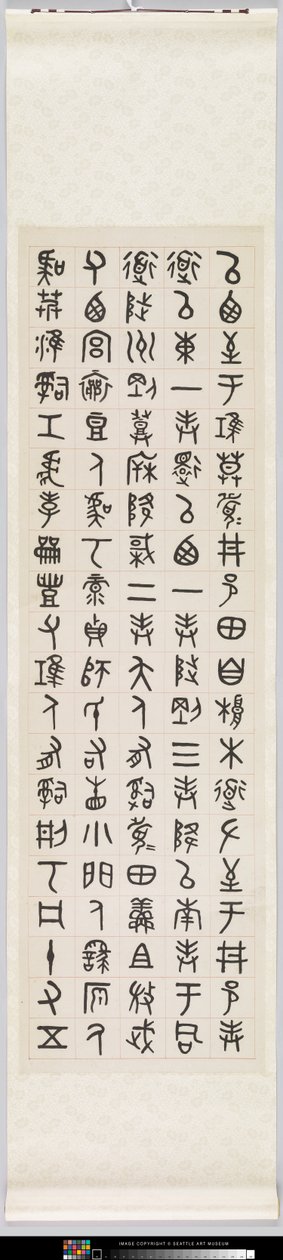 以西至于𩁹莫眉井邑田自根木道左至于井邑封
道以東一封還以西一封陟剛三封降以南封于同
道陟州剛登㭁降棫二封夨人有司眉田鮮且微武
父西宮襄豆人虞丂彔貞師氏右眚小門人繇原人
虞艿淮司工虎孝龠豐父𩁹人有司刑丂凡十又五
IMAGE COPYRIGHT © SEATTLE ART MUSEUM